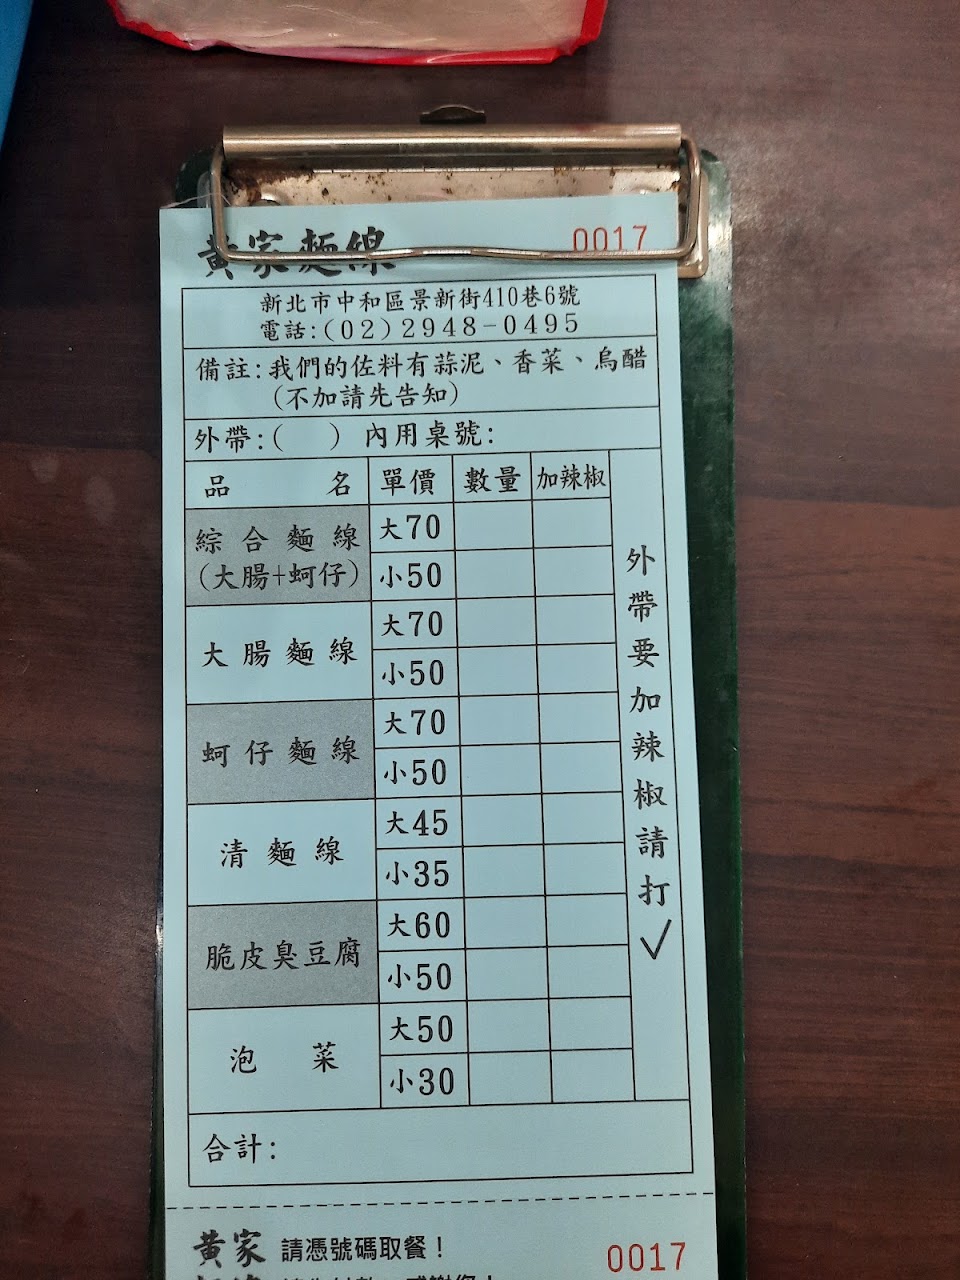 黃家麵線 0017
新北市中和區景新街410巷6號
電話:(02)2948-0495
備註:我們的佐料有蒜泥、香菜、烏醋
(不加請先告知)
外帶:( ) 內用桌號:
品名 單價 數量 加辣椒
綜合麵線
(大腸+蚵仔)
大70
小50
大腸麵線
大70
小50
蚵仔麵線
大70
小50
清麵線
大45
小35
脆皮臭豆腐
大60
小50
泡菜
大50
小30
外帶要加辣椒請打✓
合計:
黃家 請憑號碼取餐! 0017